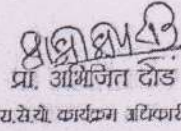 प्रा. अभिजित दोड
रा.से.यो. कार्यक्रम अधिकारी